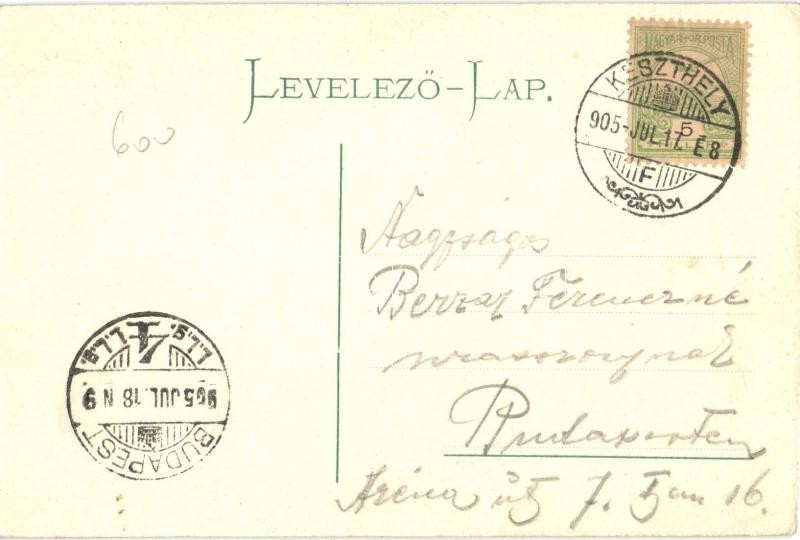 MAGYAR KIR. POSTA
LEVELEZŐ-LAP.
KESZTHELY
905-JUL.17. É8
F
5
600
Nagyságos
Ferenczné
úrasszonynak
Budapesten
Aréna út 7. I em 16.
BUDAPEST
905 JUL. 18 N 9
4